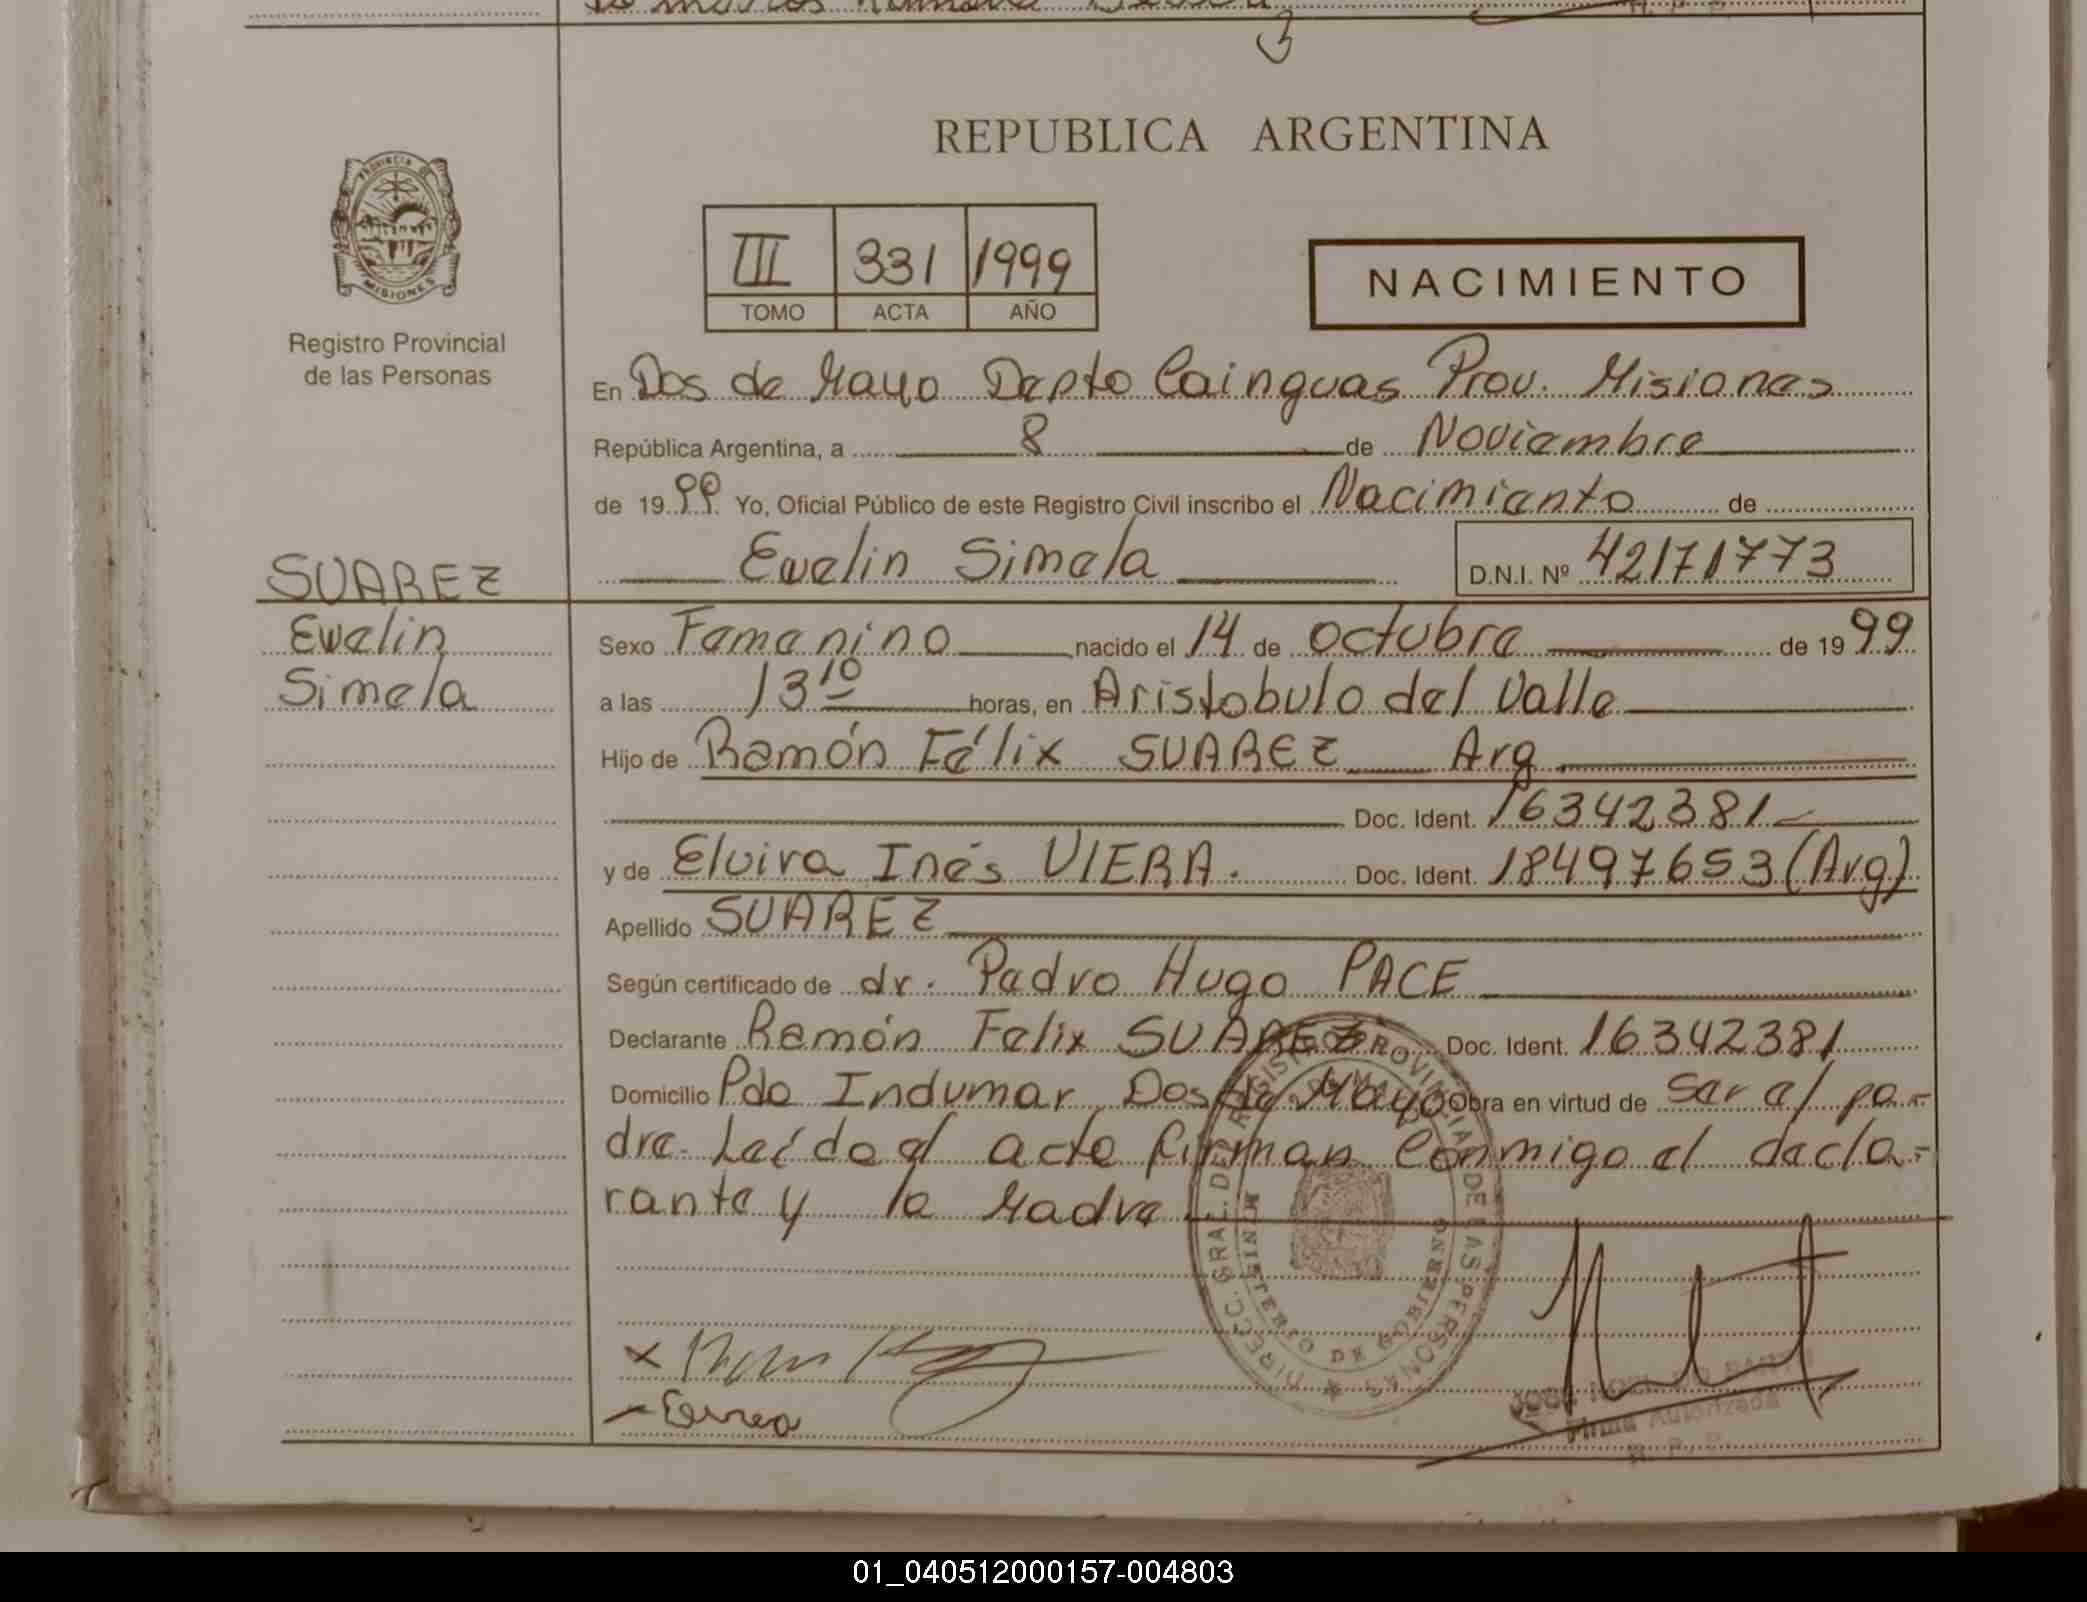 REPUBLICA ARGENTINA
PROVINCIA DE MISIONES
Registro Provincial
de las Personas
III 331 1999
TOMO ACTA AÑO
NACIMIENTO
En Dos de Mayo Depto Cainguas Prov. Misiones
República Argentina, a 8 de Noviembre
de 1999 Yo, Oficial Público de este Registro Civil inscribo el Nacimiento de
Evelin Simela D.N.I. Nº 42171773
SUAREZ
Evelin
Simela
Sexo Femenino nacido el 14 de octubre de 1999
a las 13 10 horas, en Aristobulo del Valle
Hijo de Ramón Félix SUAREZ Arg
Doc. Ident. 16342381
y de Elvira Inés VIERA. Doc. Ident. 18497653 (Arg)
Apellido SUAREZ
Según certificado de dr. Pedro Hugo PACE
Declarante Ramón Felix SUAREZ Doc. Ident. 16342381
Domicilio Pdo Indumar Dos de Mayo Obra en virtud de ser el pa-
dre. Leído el acta firman conmigo el decla-
rante y la Madre
DIRECC. GRAL. DEL REGISTRO PROVINCIAL DE LAS PERSONAS
MINISTERIO DE GOBIERNO
Firma Autorizada
01_040512000157-004803